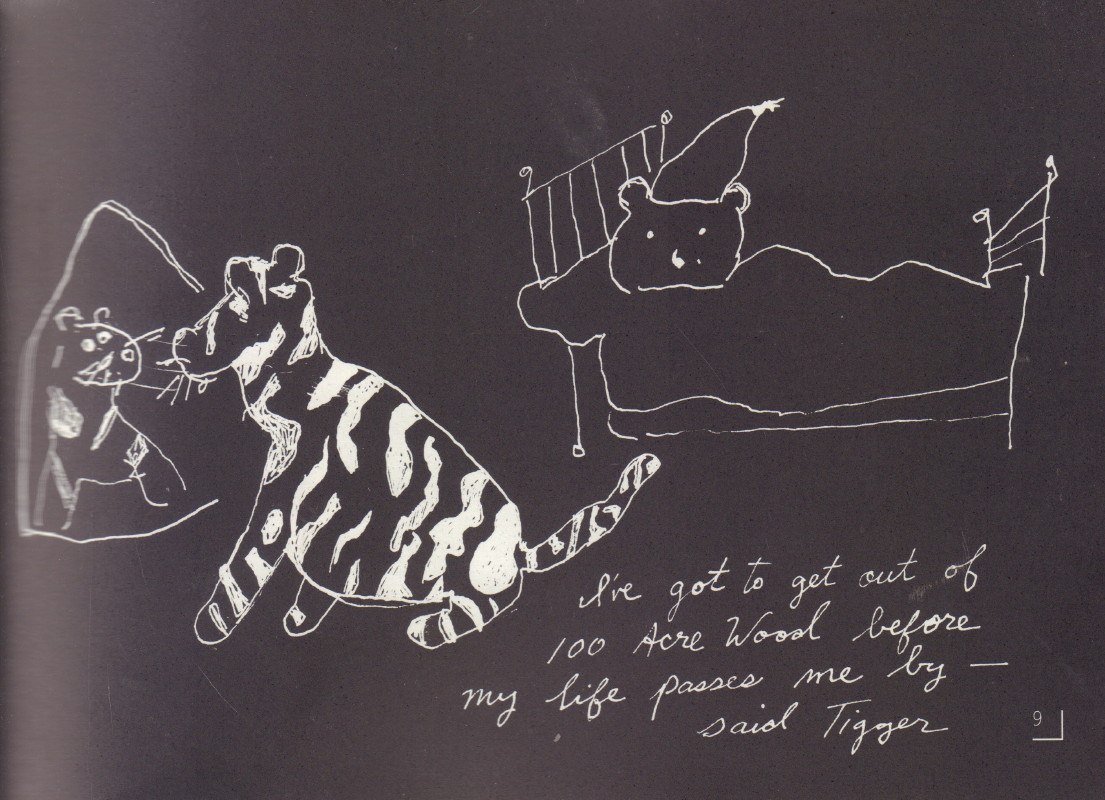 I've got to get out of
100 Acre Wood before
my life passes me by —
said Tigger
9